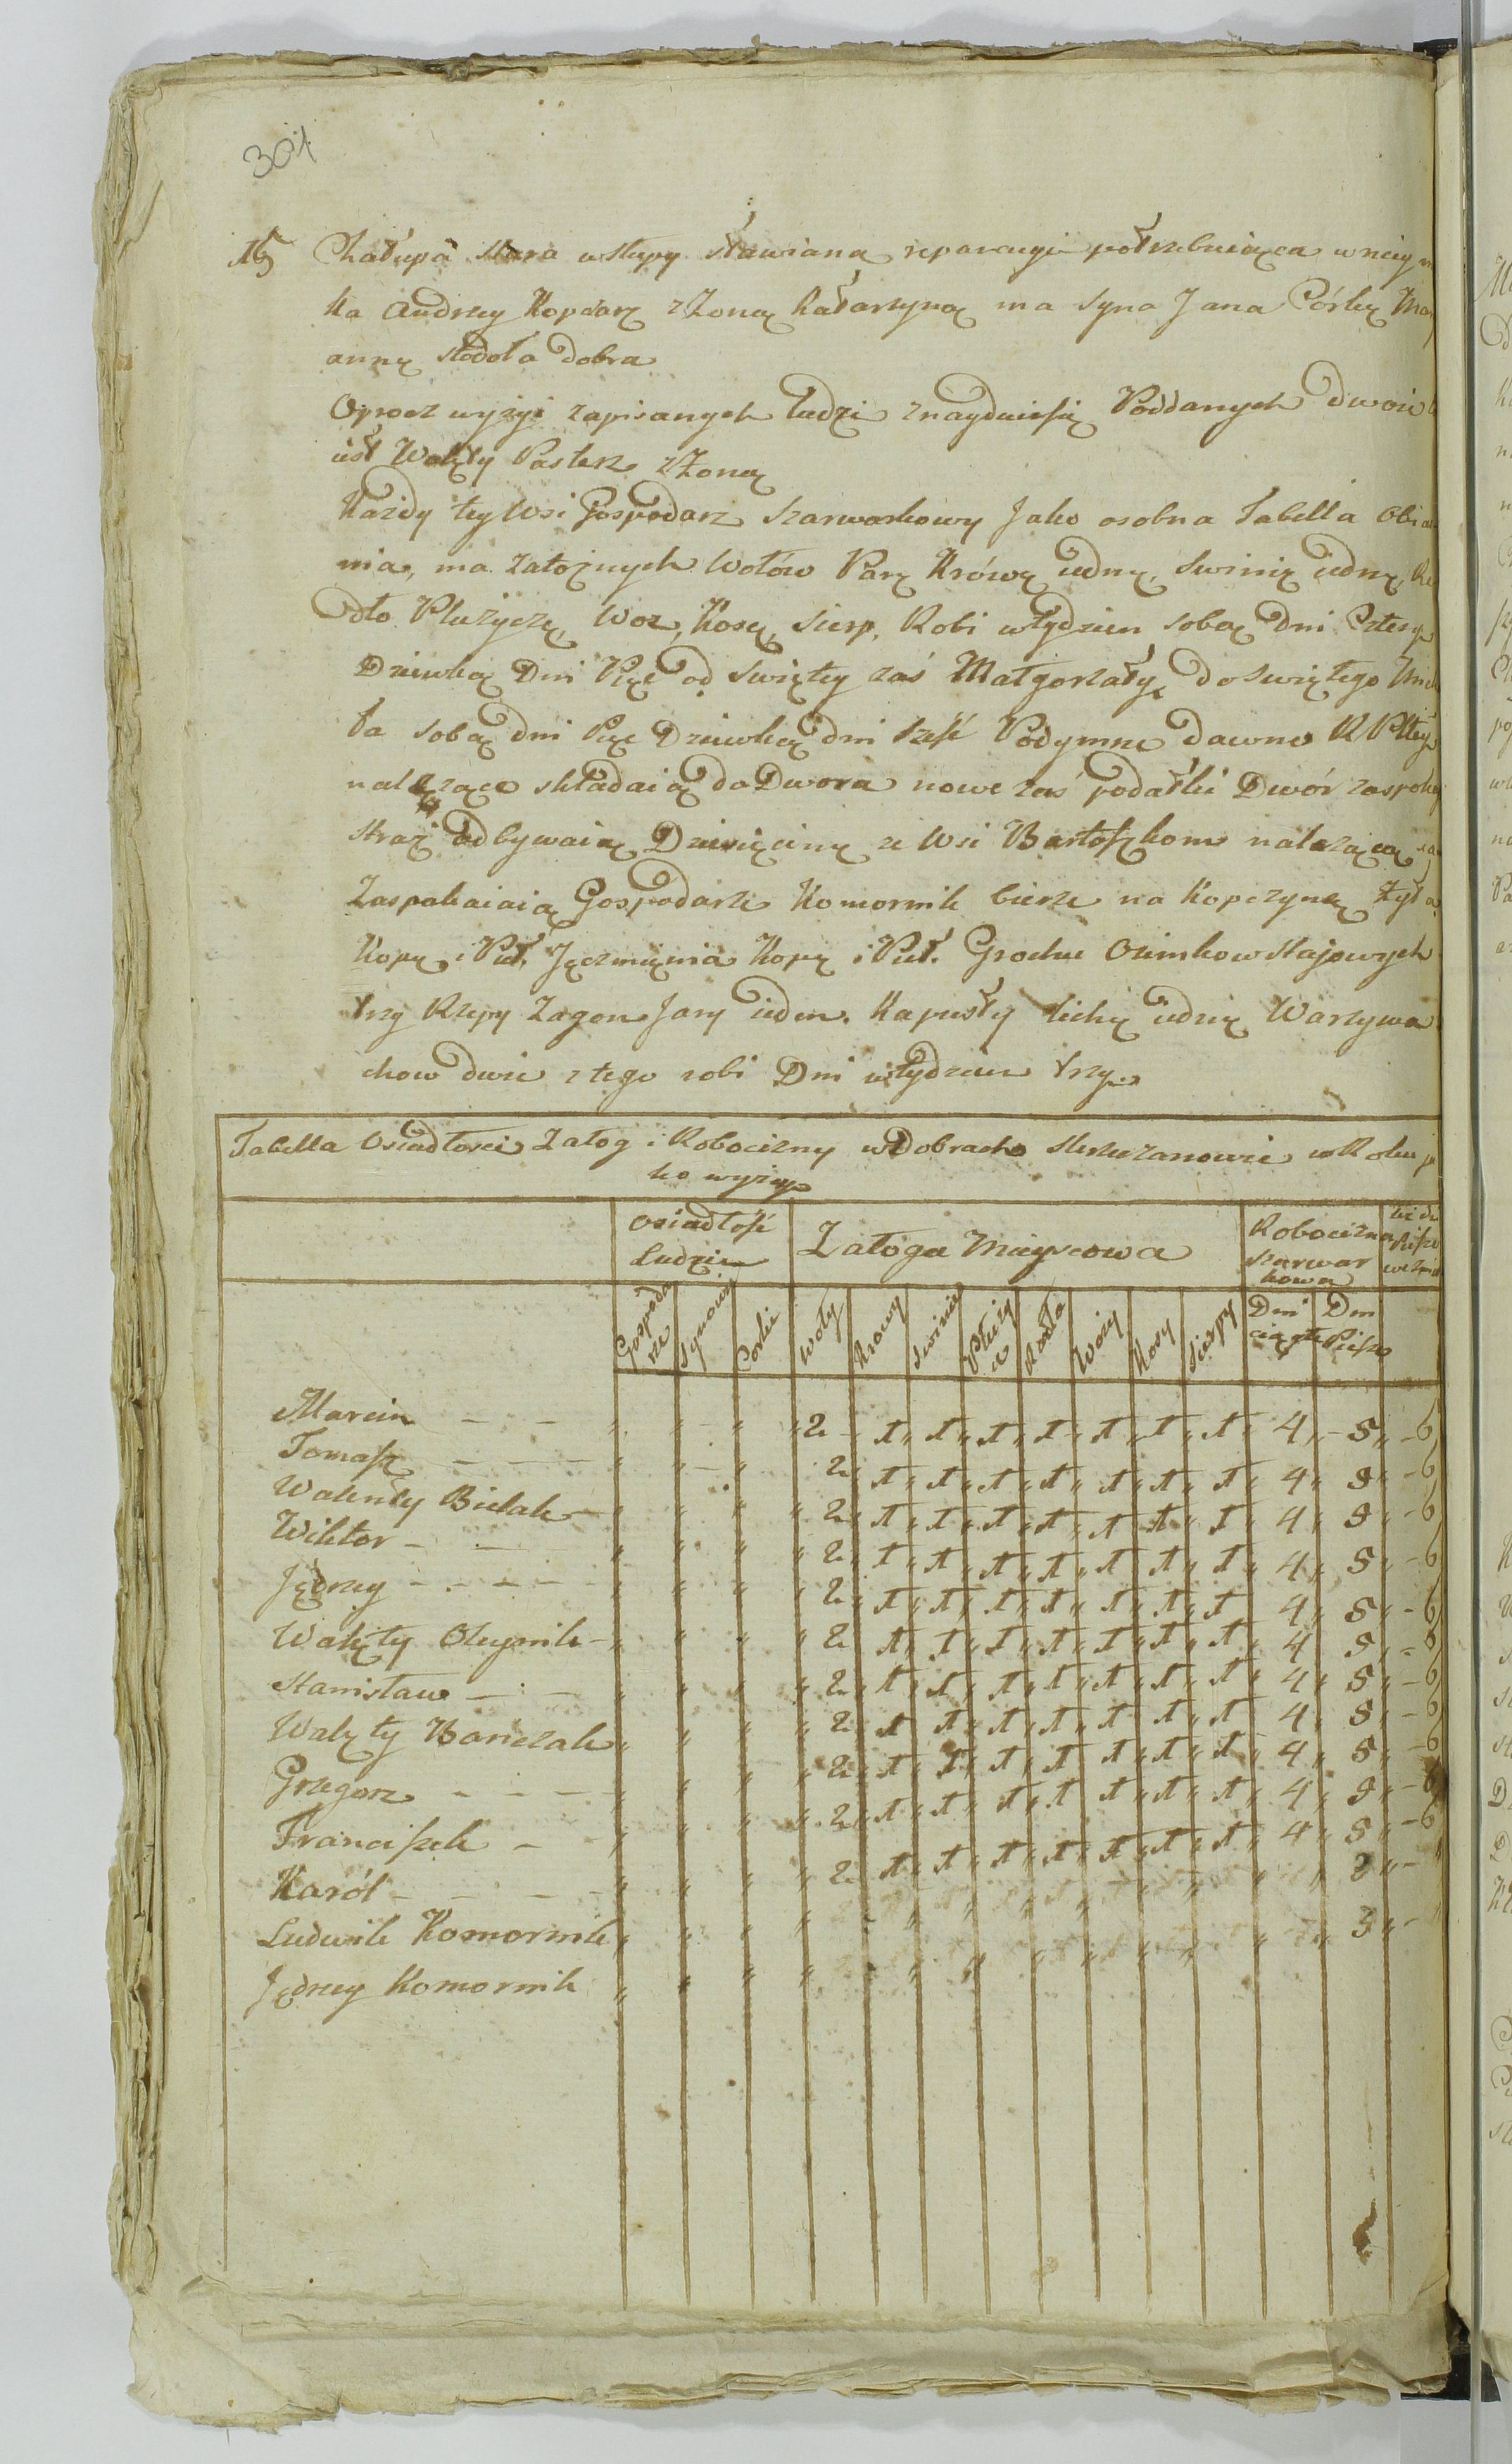 304
15 Chałupa stara wstupy stawiana reparacyi potrzebuiąca wniey
ka Andrzey Kopcarz z Zoną Katarzyną ma Syna Jana Córkę Mar
annę stodoła dobra
Oprocz wyżyi zapisanych Ludzi znayduiesię Poddanych dwoie
iest Walęty Pasterz z Zoną
Każdy tey Wsi Gospodarz Szarwarkowy Jako osobna Tabella Obia
nia, ma założnych Wołów Parę Krówę iednę, Swinię iednę, Ra
dło Płużycę, Woz, Kosę, Sierp, Robi wtydzien sobą Dni Cztery
Dziewką Dni Pięć od Swiętey zaś Małgorzaty, do Swiętego Mich
ła sobą dni Pięć Dziewką dni sześć Podymne dawne RPltey
należące składaią do Dwora nowe zaś podatki Dwór zaspoka
straż odbywaią Dziesięcinę ze Wsi Bartoszkom należącą
Zaspakaiaią Gospodarze Komornik bierze na Kopczynę Żyta
Kopę i Puł. Jęczmięnia Kopę i Puł. Grochu Ozimkow stajowych
trzy Rzepy Zagon Jary ieden. Kapusty lichę iednę Warzywa
chow dwie z tego robi Dni wtydzien trzy.
Tabella Osiadłosci Załog i Robocizny w Dobrach w Roku ja
ko wyżey
Osiadłość Ludzi Załoga Mieyscowa Robocizna Szarwar kowa
Gospoda rze Synowie Corki Woły Krowy Swinie Płuży ce Radła Wozy Kosy Sierpy Dni ciągłe Dni Piesze
Marcin - - " " " 2 1 1 1 1 1 1 1 4 5 6
Tomasz - - - " " " 2 1 1 1 1 1 1 1 4 5 6
Walenty Bielak " " " 2 1 1 1 1 1 1 1 4 5 6
Wiktor - - " " " 2 1 1 1 1 1 1 1 4 5 6
Jędrzey - - - - " " " 2 1 1 1 1 1 1 1 4 5 6
Walęty Oleynik - " " " 2 1 1 1 1 1 1 1 4 5 6
Stanisław - - " " " 2 1 1 1 1 1 1 1 4 5 6
Walęty Banczak " " " 2 1 1 1 1 1 1 1 4 5 6
Grzegorz - - - " " " 2 1 1 1 1 1 1 1 4 5 6
Franciszek - " " " 2 1 1 1 1 1 1 1 4 5 6
Karól - - - " " " 2 1 1 1 1 1 1 1 4 5 6
Ludwik Komornik " " " " " " " " " " " " 3 "
Jędrzey Komornik " " " " " " " " " " " " 3 "